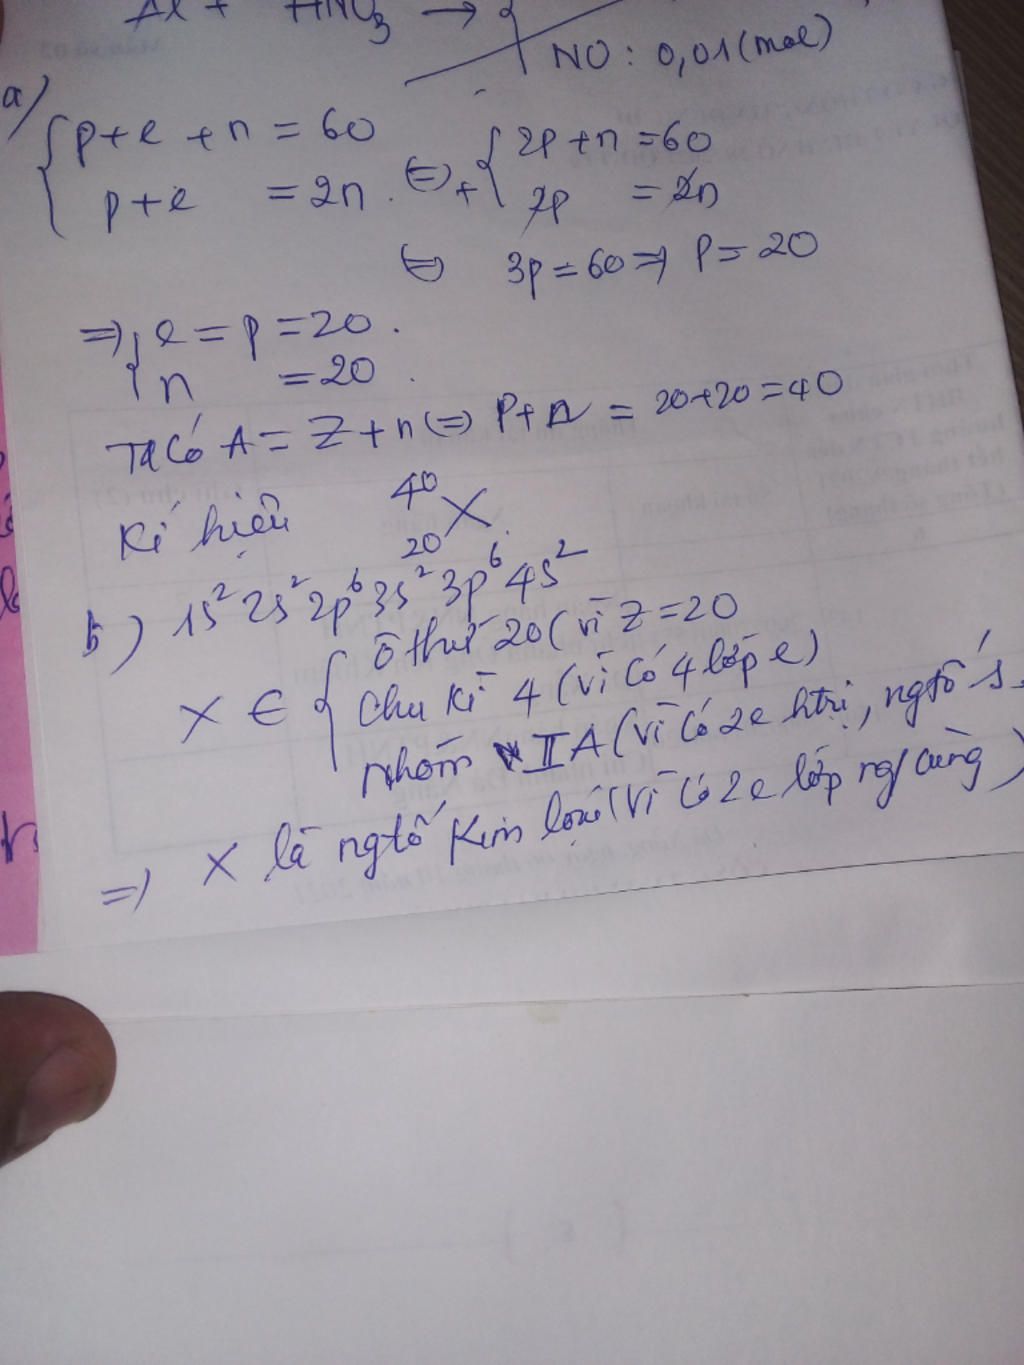 Al + HNO3 → {
NO : 0,01 (mol)
a)
{ p+e+n = 60 ⇔ + { 2p+n = 60
p+e = 2n. 2p = 2n
⇔ 3p = 60 ⇒ p = 20
⇒ { e = p = 20.
n = 20.
Ta có A = Z + n ⇔ p+n = 20+20 = 40
Kí hiệu ⁴⁰₂₀X.
b) 1s² 2s² 2p⁶ 3s² 3p⁶ 4s²
X ∈ { ô thứ 20 ( vì Z = 20
Chu kì 4 (vì có 4 lớp e)
Nhóm IIA (vì có 2e htrị, ngtố s.
⇒ X là ngtố kim loại (vì có 2e lớp ng/ cùng)